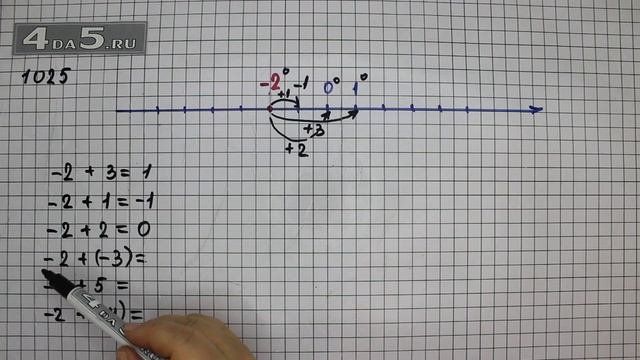 4DA5.RU
1025
-2° -1 0° 1°
+1
+3
+2
-2 + 3 = 1
-2 + 1 = -1
-2 + 2 = 0
-2 + (-3) =
+ 5 =
-2 ) =
4DA5